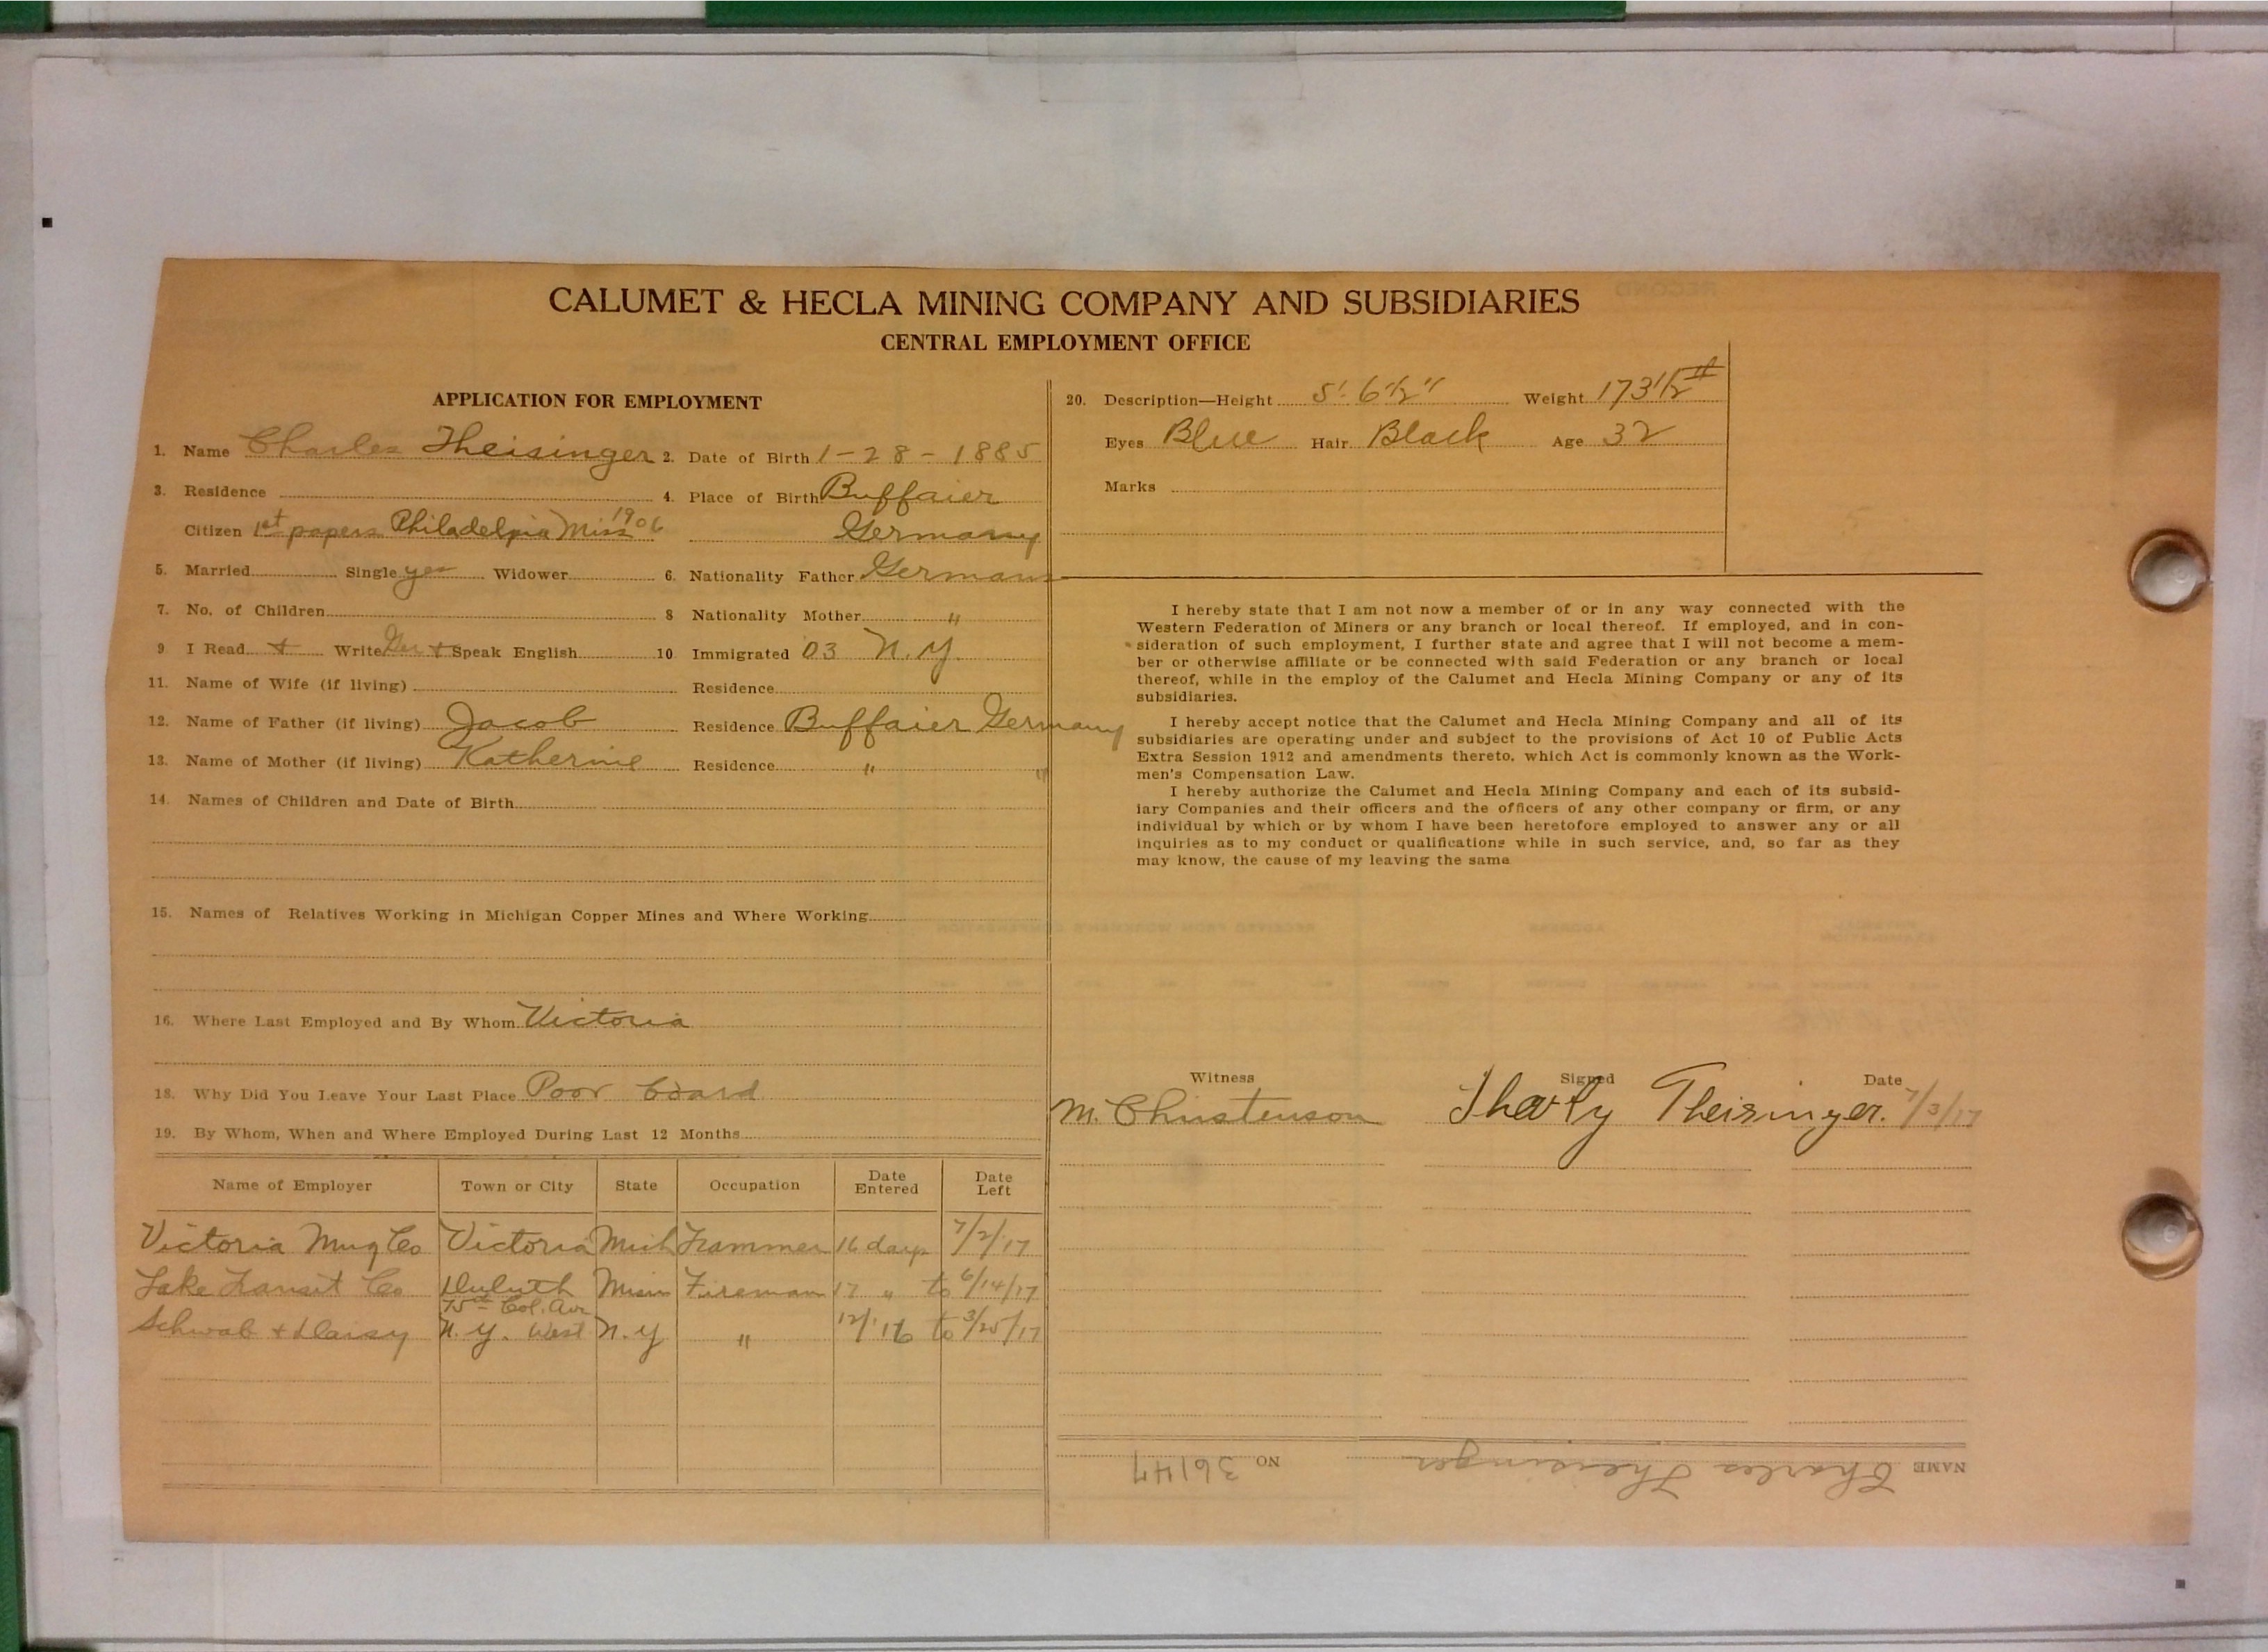 CALUMET & HECLA MINING COMPANY AND SUBSIDIARIES
CENTRAL EMPLOYMENT OFFICE
APPLICATION FOR EMPLOYMENT
1. Name Charles Theisinger 2. Date of Birth 1-28-1885
3. Residence 4. Place of Birth Buffaier
Citizen 1st papers Philadelpia Miss 1906 Germany
5. Married Single yes Widower 6. Nationality Father German
7. No. of Children 8 Nationality Mother "
9 I Read + Write Ger + Speak English 10 Immigrated 03 N.Y.
11. Name of Wife (if living) Residence
12. Name of Father (if living) Jacob Residence Buffaier Germany
13. Name of Mother (if living) Katherine Residence " "
14. Names of Children and Date of Birth
15. Names of Relatives Working in Michigan Copper Mines and Where Working
16. Where Last Employed and By Whom Victoria
18. Why Did You Leave Your Last Place Poor board
19. By Whom, When and Where Employed During Last 12 Months
Name of Employer Town or City State Occupation Date Entered Date Left
Victoria Mng Co Victoria Mich Trammer 16 days 7/2/17
Lake Transit Co Duluth Minn Fireman 17 " to 6/14/17
Schwab + Daisy 75 Col. Ave N.Y. West N.Y " 12/'16 to 3/25/17
20. Description—Height 5' 6 1/2" Weight 173 1/2 #
Eyes Blue Hair Black Age 32
Marks
I hereby state that I am not now a member of or in any way connected with the
Western Federation of Miners or any branch or local thereof. If employed, and in con-
sideration of such employment, I further state and agree that I will not become a mem-
ber or otherwise affiliate or be connected with said Federation or any branch or local
thereof, while in the employ of the Calumet and Hecla Mining Company or any of its
subsidiaries.
I hereby accept notice that the Calumet and Hecla Mining Company and all of its
subsidiaries are operating under and subject to the provisions of Act 10 of Public Acts
Extra Session 1912 and amendments thereto, which Act is commonly known as the Work-
men's Compensation Law.
I hereby authorize the Calumet and Hecla Mining Company and each of its subsid-
iary Companies and their officers and the officers of any other company or firm, or any
individual by which or by whom I have been heretofore employed to answer any or all
inquiries as to my conduct or qualifications while in such service, and, so far as they
may know, the cause of my leaving the same
Witness Signed Date
M. Christenson Sharly Theisinger. 7/3/17
NAME Charles Theisinger NO 36147